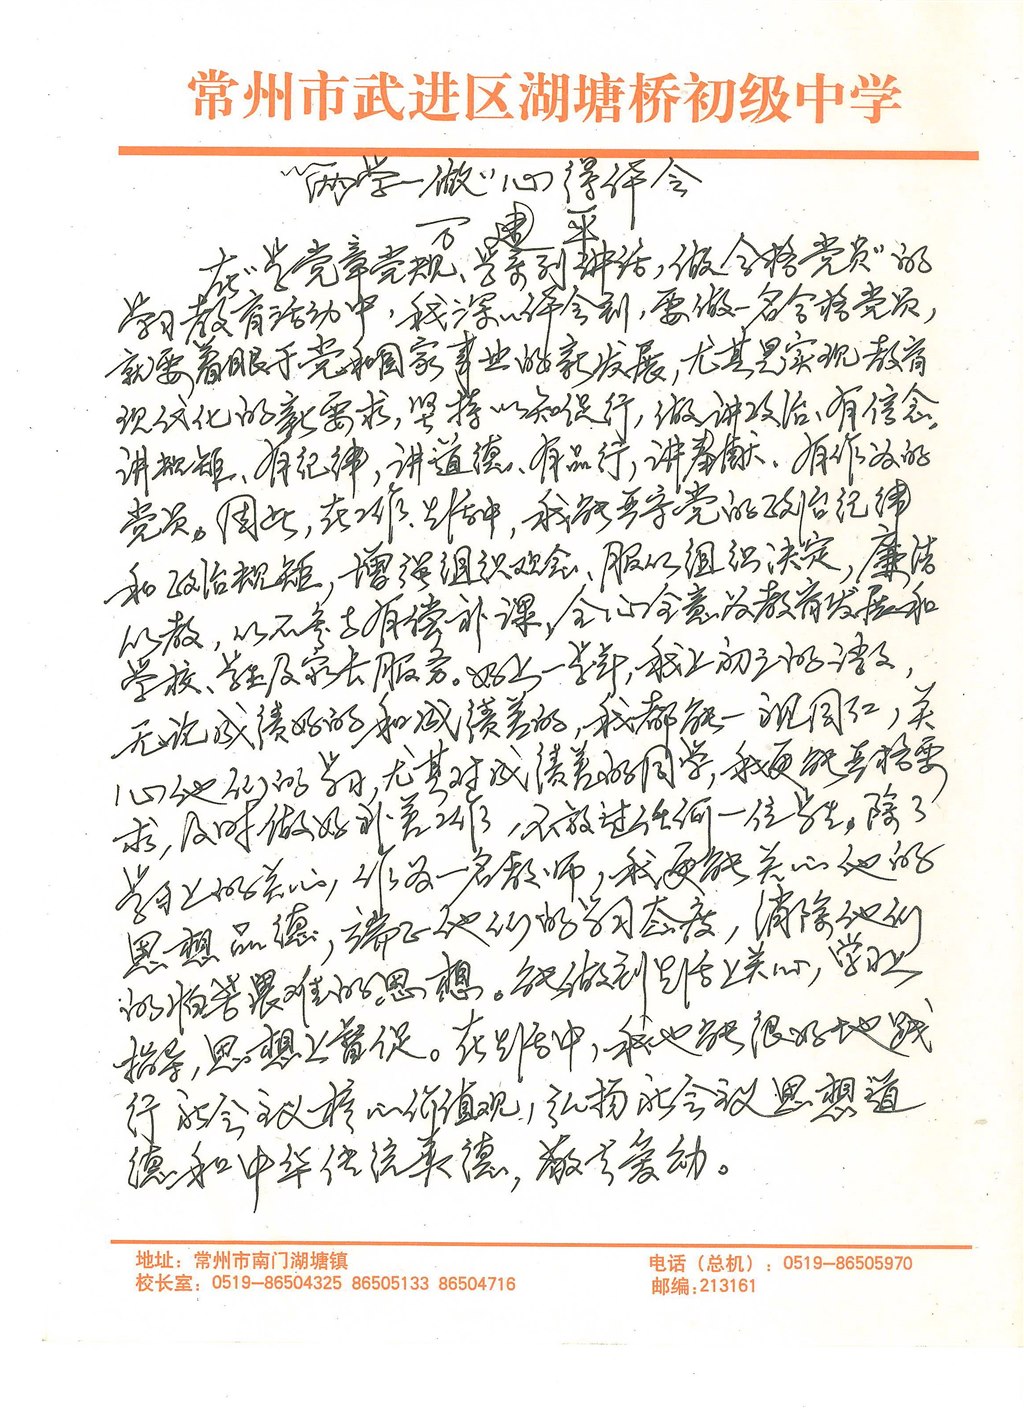 常州市武进区湖塘桥初级中学
“两学一做”心得体会
万建平
在“学党章党规、学系列讲话，做合格党员”的
学习教育活动中，我深以体会到，要做一名合格党员，
就要着眼于党和国家事业的新发展，尤其是实现教育
现代化的新要求，坚持以知促行，做讲政治、有信念，
讲规矩、有纪律，讲道德、有品行，讲奉献、有作为的
党员。因此，在工作、生活中，我能严守党的政治纪律
和政治规矩，增强组织观念、服从组织决定，廉洁
从教，从不参与有偿补课，全心全意为教育发展和
学校、学生及家长服务。如上一学年，我上初三的语文，
无论成绩好的和成绩差的，我都能一视同仁，关
心他们的学习，尤其对成绩差的同学，我更能严格要
求，及时做好补差工作，不放过任何一位学生。除了
学习上的关心，作为一名教师，我更能关心他的
思想品德，端正他们的学习态度，消除他们
的怕苦畏难的思想。能做到生活上关心，学习上
指导，思想上督促。在生活中，我也能很好地践
行社会主义核心价值观，弘扬社会主义思想道
德和中华传统美德，敬老爱幼。
地址：常州市南门湖塘镇
校长室：0519—86504325 86505133 86504716
电话（总机）：0519—86505970
邮编:213161